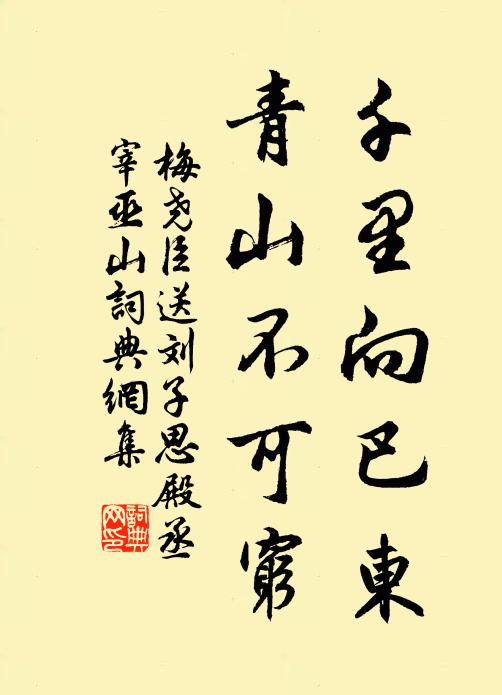 千里向巴東
青山不可窮
梅尧臣送刘子思殿丞
宰巫山詞典網集
詞典
网印